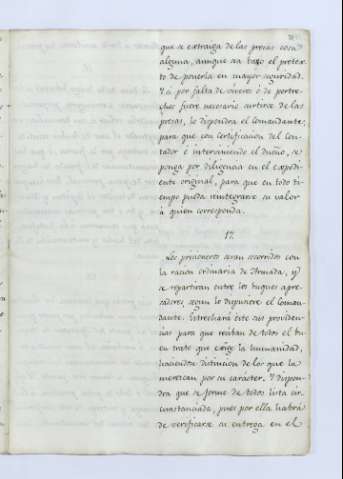 que se extraiga de las presas cosa
alguna, aunque sea baxo el pretex-
to de ponerla en mayor seguridad.
Y si por falta de viveres ó de pertre-
chos fuere necesario surtirse de las
presas, lo dispondrá el Comandante;
para que con certificacion del Con-
tador é interviniendo el dueño, se
ponga por diligencia en el expedi-
ente original, para que en todo ti-
empo pueda reintegrarse su valor
á quien corresponda.
12
Los prisioneros seran socorridos con
la racion ordinaria de Armada, y
se repartiran entre los buques apre-
sadores, segun lo dispusiere el Coman-
dante. Estrechará este sus providen-
cias para que reciban de todos el bu-
en trato que exige la humanidad,
haciendose distincion de los que la
merezcan por su caracter. Y dispon-
drá que se forme de todos lista cir-
cunstanciada, pues por ella habrá
de verificarse su entrega en el